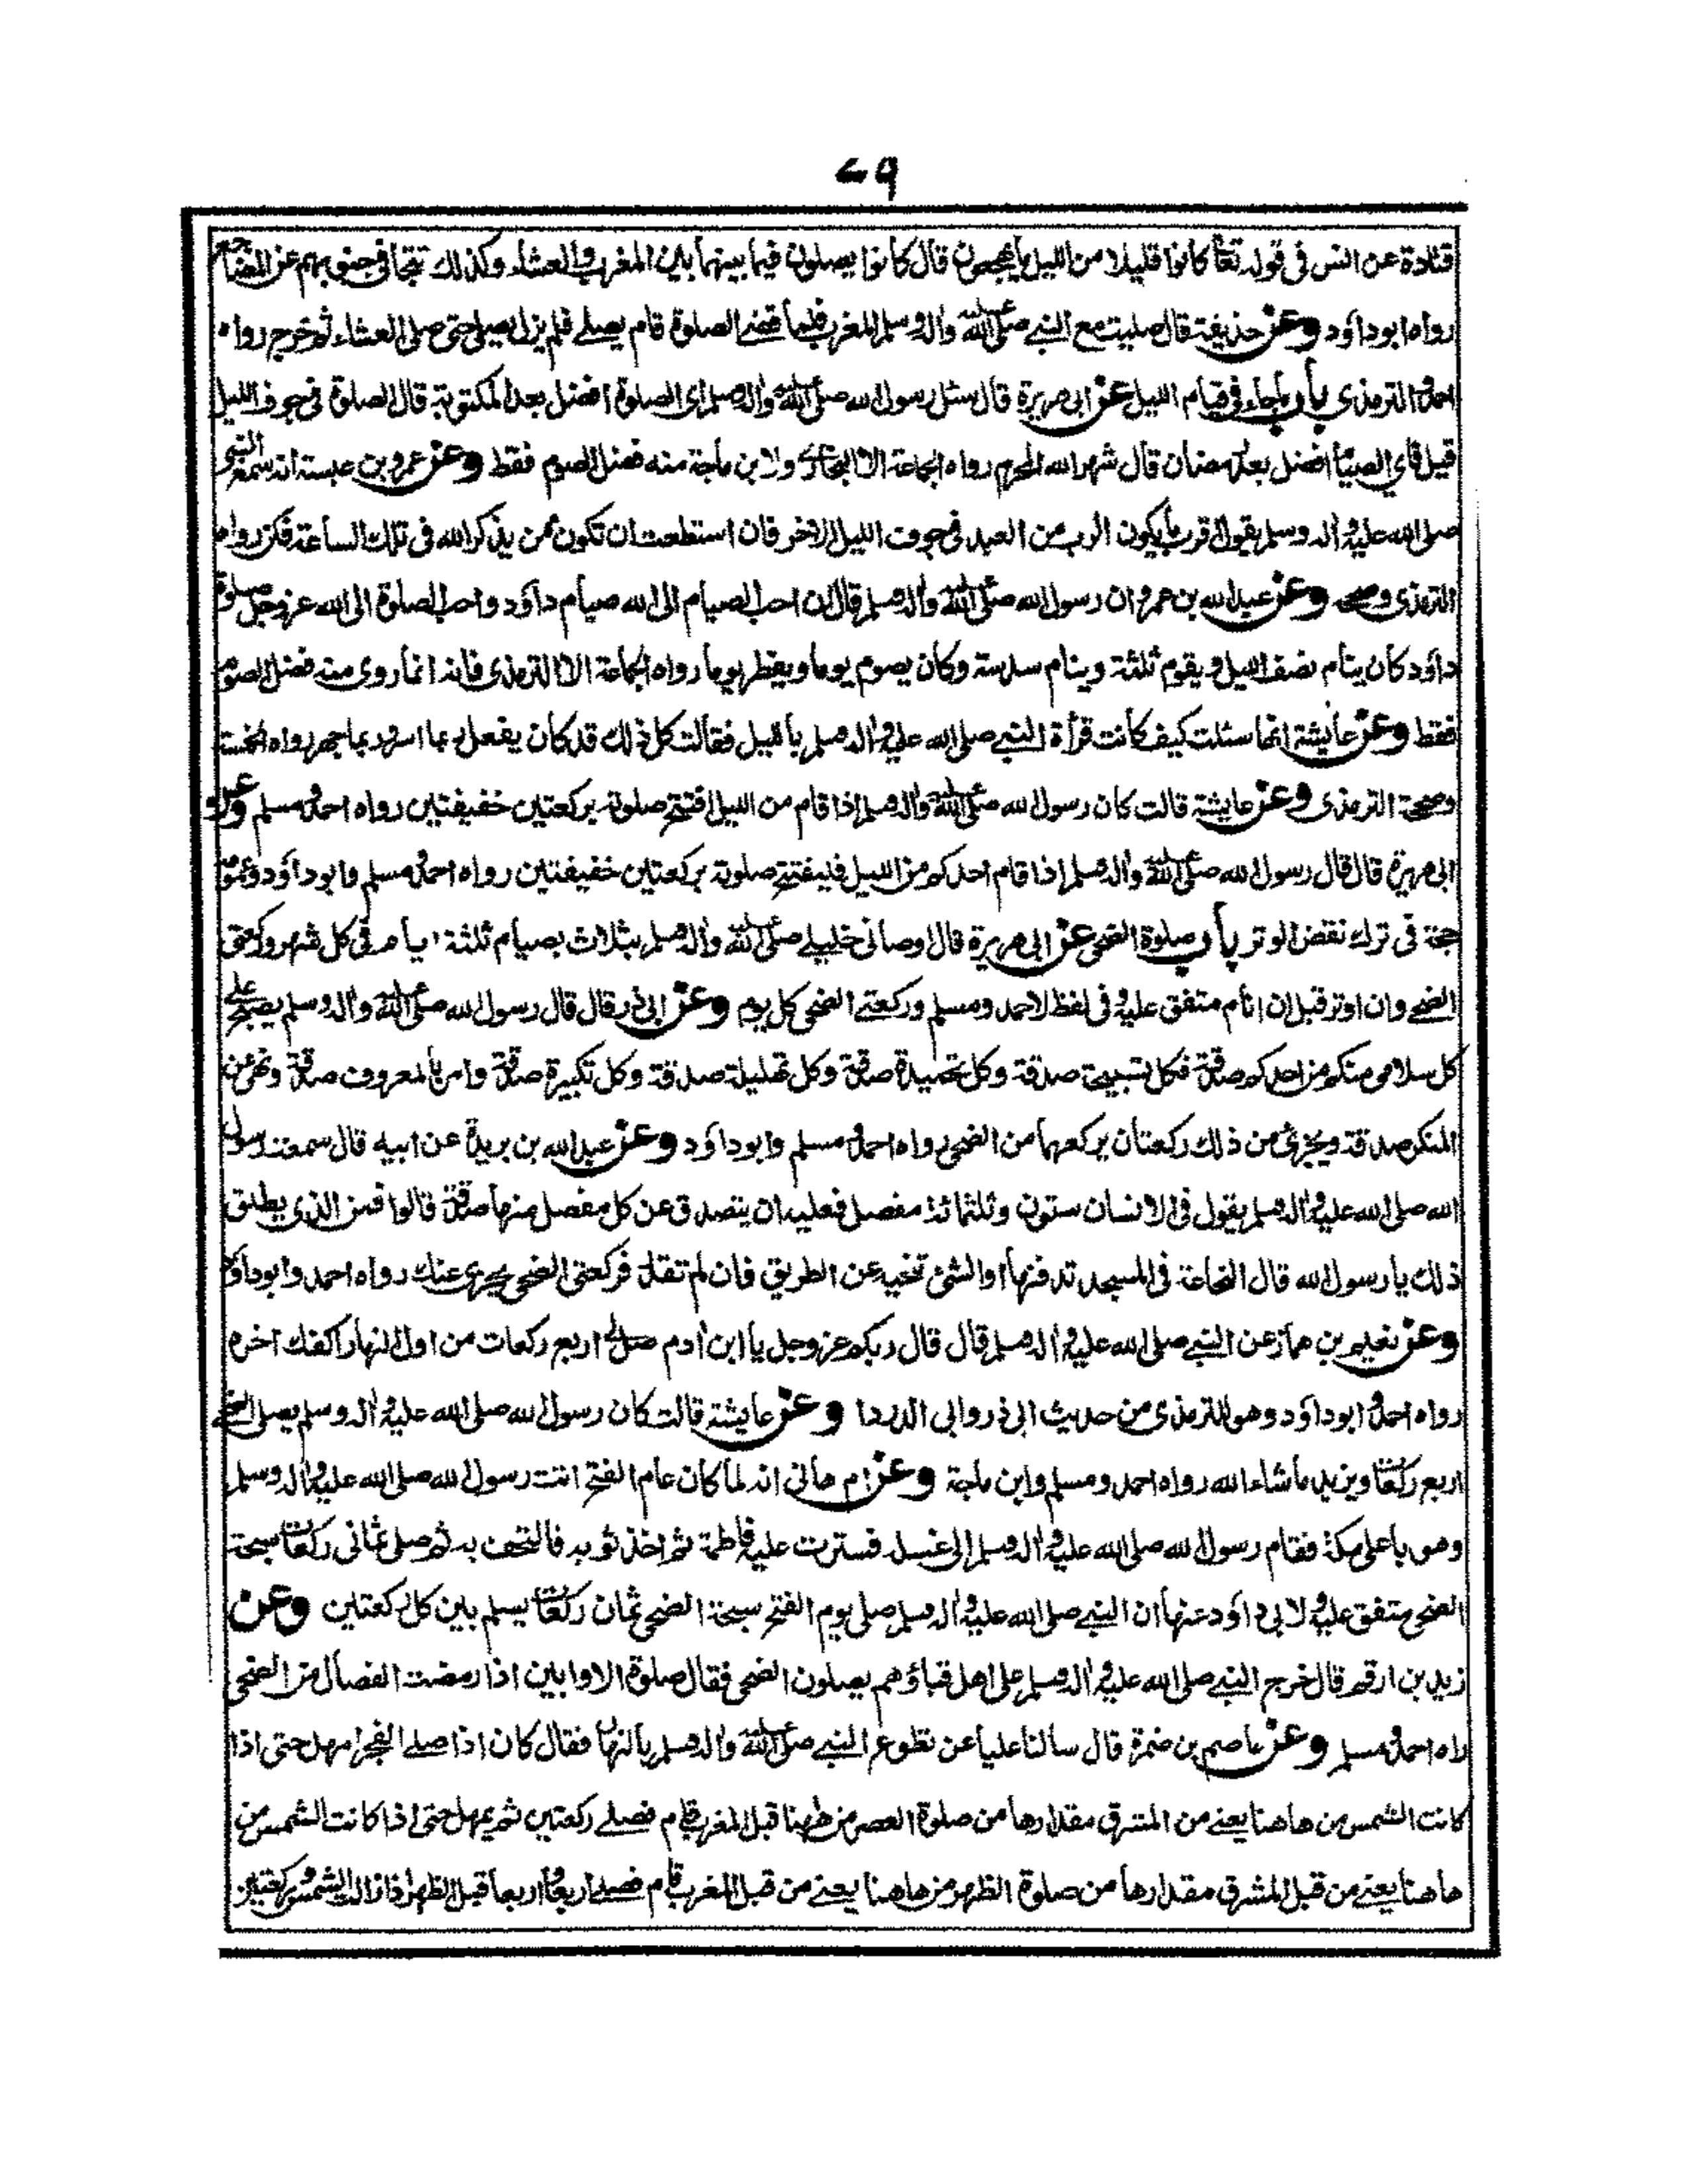 ٧٩
قتادة عن انس فى قوله تعا كانوا قليلا من الليل ما يهجعون قال كانوا يصلون فيما بينهما بين المغرب والعشاء وكذلك تتجافى جنوبهم عن المضاجع
رواه ابوداؤد وعن حذيفة قال صليت مع النبى صلى الله عليه واله وسلم المغرب فلما قضى الصلوة قام يصلى فلم يزل يصلى حتى صلى العشاء ثم خرج رواه
احمد والترمذى باب ما جاء فى قيام الليل عن ابى هريرة قال سئل رسول الله صلى الله عليه واله وسلم اى الصلوة افضل بعد المكتوبة قال الصلوة فى جوف الليل
قيل فاى الصيام افضل بعد رمضان قال شهر الله المحرم رواه الجماعة الا البخارى ولابن ماجة منه فضل الصوم فقط وعن عمرو بن عبسة انه سمع النبى
صلى الله عليه واله وسلم يقول اقرب ما يكون الرب من العبد فى جوف الليل الاخر فان استطعت ان تكون ممن يذكر الله فى تلك الساعة فكن رواه
الترمذى وصححه وعن عبد الله بن عمرو ان رسول الله صلى الله عليه واله وسلم قال ان احب الصيام الى الله صيام داؤد واحب الصلوة الى الله عزوجل صلوة
داؤد كان ينام نصف الليل ويقوم ثلثه وينام سدسه وكان يصوم يوما ويفطر يوما رواه الجماعة الا الترمذى فانه انما روى منه فضل الصوم
فقط وعن عايشة انها سئلت كيف كانت قرأة النبى صلى الله عليه واله وسلم بالليل فقالت كل ذلك قد كان يفعل ربما اسر وربما جهر رواه الخمسة
وصححه الترمذى وعن عايشة قالت كان رسول الله صلى الله عليه واله وسلم اذا قام من الليل افتتح صلوته بركعتين خفيفتين رواه احمد ومسلم وعن
ابى هريرة قال قال رسول الله صلى الله عليه واله وسلم اذا قام احدكم من الليل فليفتتح صلوته بركعتين خفيفتين رواه احمد ومسلم وابو داؤد وعمومه
حجة فى ترك نقض الوتر باب صلوة الضحى عن ابى هريرة قال اوصانى خليلى صلى الله عليه واله وسلم بثلاث بصيام ثلثة ايام فى كل شهر وركعتى
الضحى وان اوتر قبل ان انام متفق عليه وفى لفظ لاحمد ومسلم وركعتى الضحى كل يوم وعن ابى ذر قال قال رسول الله صلى الله عليه واله وسلم يصبح على
كل سلامى من احدكم صدقة فكل تسبيحة صدقة وكل تحميدة صدقة وكل تهليلة صدقة وكل تكبيرة صدقة وامر بالمعروف صدقة ونهى عن
المنكر صدقة ويجزئ من ذلك ركعتان يركعهما من الضحى رواه احمد ومسلم وابوداؤد وعن عبد الله بن بريدة عن ابيه قال سمعت رسول
الله صلى الله عليه واله وسلم يقول فى الانسان ستون وثلثمائة مفصل فعليه ان يتصدق عن كل مفصل منها صدقة قالوا فمن الذى يطيق
ذلك يا رسول الله قال النخاعة فى المسجد تدفنها او الشئ تنحيه عن الطريق فان لم تقدر فركعتى الضحى يجزى عنك رواه احمد وابوداؤد
وعن نعيم بن همار عن النبى صلى الله عليه واله وسلم قال قال ربكم عزوجل يا ابن ادم صل لى اربع ركعات من اول النهار اكفك اخره
رواه احمد وابوداؤد وهو للترمذى من حديث ابى ذر وابى الدردا وعن عايشة قالت كان رسول الله صلى الله عليه واله وسلم يصلى الضحى
اربع ركعات ويزيد ما شاء الله رواه احمد ومسلم وابن ماجة وعن ام هانى انه لما كان عام الفتح اتت رسول الله صلى الله عليه واله وسلم
وهو باعلى مكة فقام رسول الله صلى الله عليه واله وسلم الى غسله فسترت عليه فاطمة ثم اخذ ثوبه فالتحف به ثم صلى ثمانى ركعات سبحة
الضحى متفق عليه ولابى داؤد عنها ان النبى صلى الله عليه واله وسلم صلى يوم الفتح سبحة الضحى ثمان ركعات يسلم بين كل ركعتين وعن
زيد بن ارقم قال خرج النبى صلى الله عليه واله وسلم على اهل قباؤهم يصلون الضحى فقال صلوة الاوابين اذا رمضت الفصال من الضحى
راه احمد ومسلم وعن عاصم بن ضمرة قال سالنا عليا عن تطوع النبى صلى الله عليه واله وسلم بالنهار فقال كان اذا صلى الفجر امهل حتى اذا
كانت الشمس من هاهنا يعنى من المشرق مقدارها من صلوة العصر من ههنا قبل المغرب قام فصلى ركعتين ثم يمهل حتى اذا كانت الشمس من
هاهنا يعنى من قبل المشرق مقدارها من صلوة الظهر من هاهنا يعنى من قبل المغرب قام فصلى اربعا واربعا قبل الظهر اذا زالت الشمس وركعتين